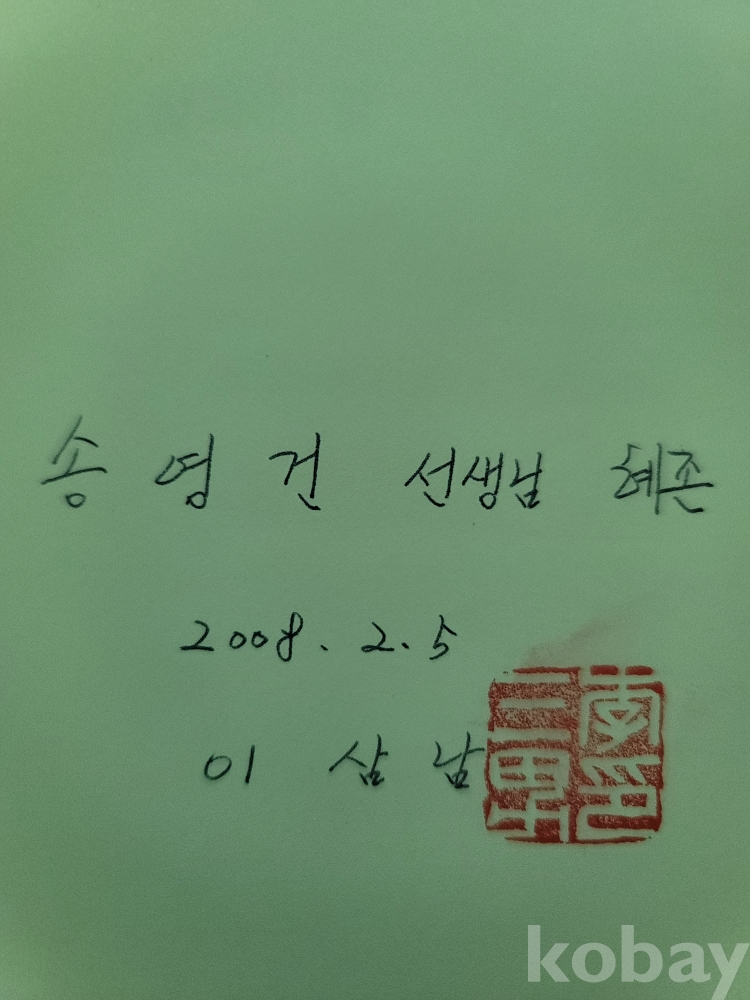 송 영 건 선생님 혜존
2008. 2. 5
이 삼 남
kobay